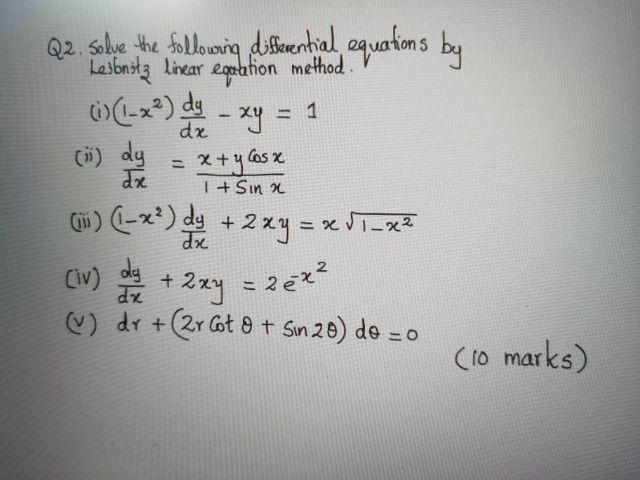 Q2. Solve the following differential equations by
Lesbnitz linear equation method.
(i) (1-x²) dy/dx - xy = 1
(ii) dy/dx = (x + y Cos x)/(1 + Sin x)
(iii) (1-x²) dy/dx + 2xy = x √(1-x²)
(iv) dy/dx + 2xy = 2e^(-x²)
(v) dr + (2r Cot θ + Sin 2θ) dθ = 0
(10 marks)